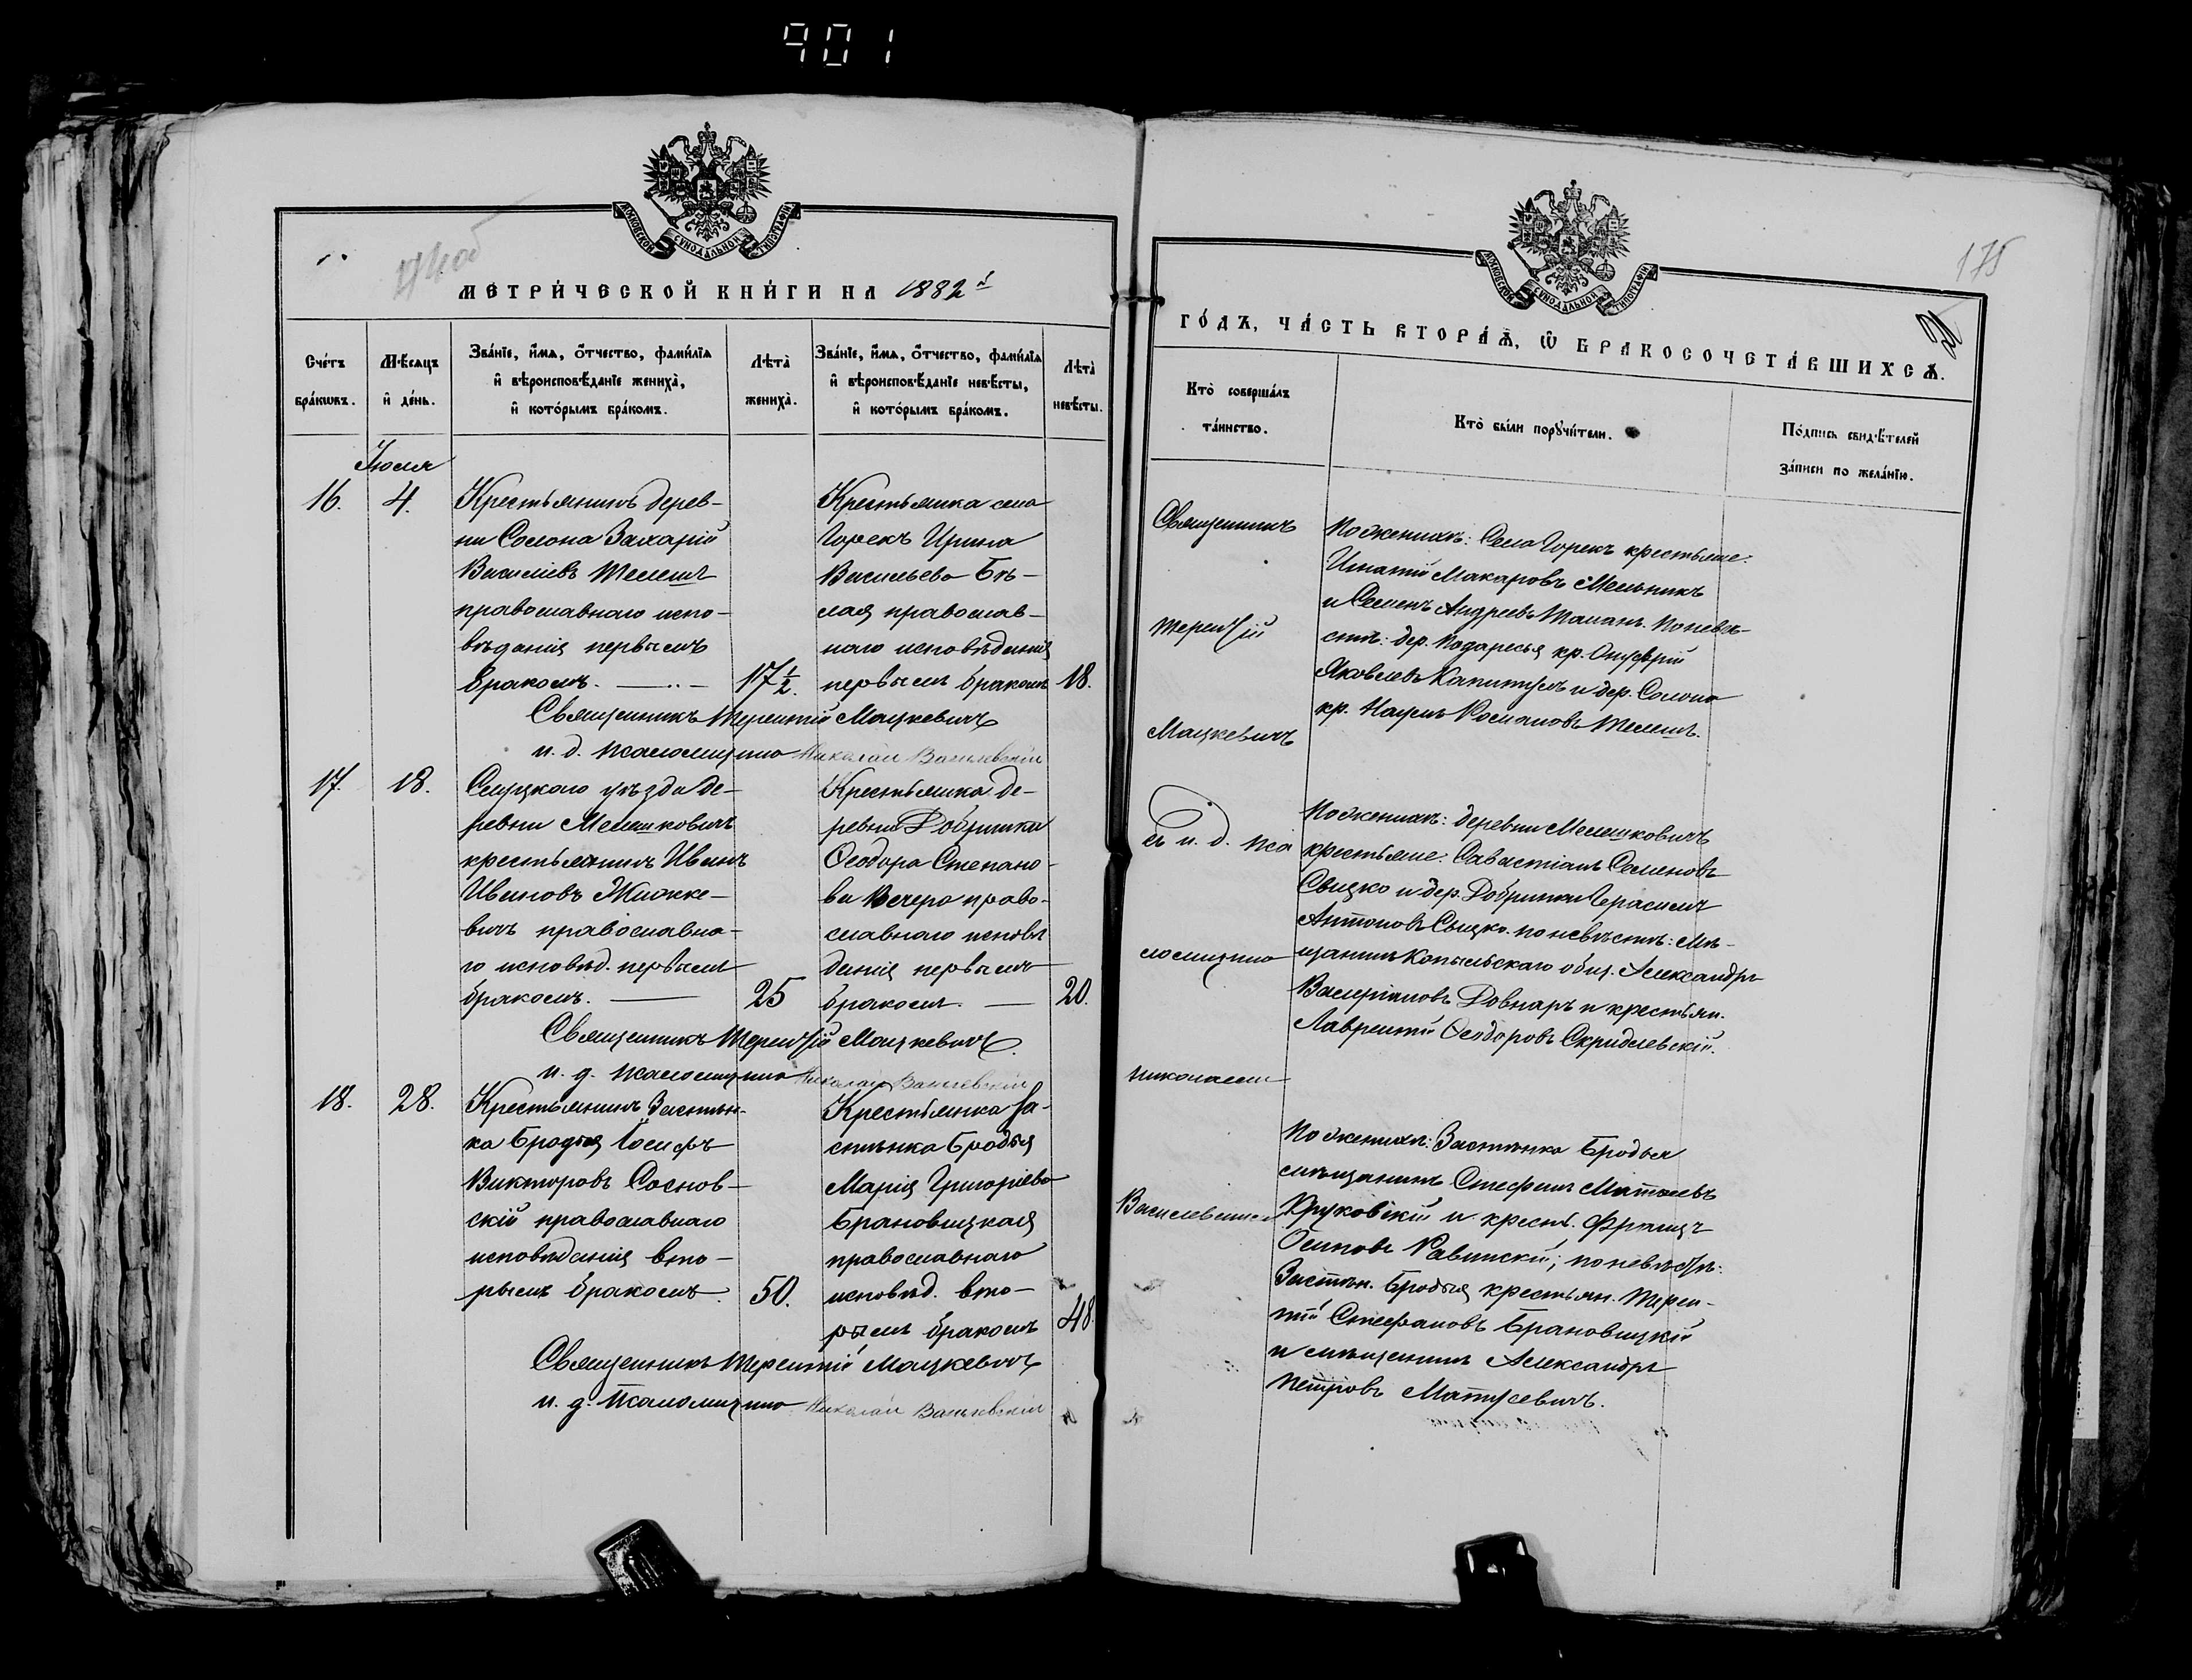 901
МОСКОВСКОЙ СѴНОДАЛЬНОЙ ТИПОГРАФІИ
МЕТРИ́ЧЕСКОЙ КНИ́ГИ НА 1882й
Сче́тъ бра́кѡвъ.
Мѣ́сяцъ и҆ де́нь.
Зва́нїе, и҆́мѧ, ѻ҆́тчество, фами́лїѧ и҆ вѣроисповѣ́данїе жениха̀, и҆ кото́рымъ бра́комъ.
Лѣта̀ жениха̀.
Зва́нїе, и҆́мѧ, ѻ҆́тчество, фами́лїѧ и҆ вѣроисповѣ́данїе невѣ́сты, и҆ кото́рымъ бра́комъ.
Лѣта̀ невѣ́сты.
Іюля
16.
4.
Крестьянинъ дерев-
ни Солона Захарій
Василіевъ Телешъ
православнаго испо-
вѣданія первымъ
бракомъ.
17½.
Крестьянка села
Горекъ Ирина
Васильева Бѣ-
лая православ-
наго исповѣданія
первымъ бракомъ
18.
Священникъ Терентій Мацкевичъ
и. д. псаломщика Николай Василевскій
17.
18.
Слуцкого уѣзда де-
ревни Мелешковичъ
крестьянинъ Иванъ
Ивановъ
вичъ православна-
го исповѣд. первымъ
бракомъ.
25
Крестьянка де-
ревни Добринки
Ѳеодора Степано-
ва Вечера право-
славнаго исповѣ
данія первымъ
бракомъ.
20.
Священникъ Терентій Мацкевичъ.
и. д. псаломщика Николай Василевскій
18.
28.
Крестьянинъ Застѣн-
ка Бродья Іосифъ
Викторовъ Соснов-
скій православнаго
исповѣданія вто-
рымъ бракомъ.
50.
Крестьянка За-
стѣнка Бродья
Марія Григоріева
Брановицкая
православнаго
исповѣд. вто-
рымъ бракомъ
48.
Священникъ Терентій Мацкевичъ
и. д. псаломщика Николай Василевскій
175
МОСКОВСКОЙ СѴНОДАЛЬНОЙ ТИПОГРАФІИ
ГО́ДЪ, ЧА́СТЬ ВТОРА́Ѧ, Ѽ БРАКОСОЧЕТА́ВШИХСѦ.
Кто̀ соверша́лъ та́инство.
Кто̀ бы́ли порꙋчи́тели.
По́дпись свидѣ́телей за́писи по жела́нїю.
Священникъ
Терентій
Мацкевичъ
съ и. д. пса
ломщика
Николаемъ
Василевскимъ
По женихѣ: Села Горекъ крестьяне:
Игнатій Макаровъ Мельникъ
и Семенъ Андреевъ Таманъ. По невѣ-
стѣ: дер. Подаресья кр. Онуфрій
Яковлевъ Капитулъ и дер. Солона
кр. Наумъ Романовъ Телешъ.
По женихѣ: деревни Мелешковичъ
крестьяне: Савастіанъ Семеновъ
Свицко и дер. Добринки Герасимъ
Антоновъ Свицко. по невѣстѣ: Мѣ-
щанинъ Копыльскаго общ. Александръ
Валеріановъ Довнаръ и крестьян.
Лаврентій Ѳеодоровъ Скридлевскій.
По женихѣ: Застѣнка Бродья
мѣщанинъ Стефанъ Матвеевъ
Круковскій и крест. Францъ
Осиповъ Равинскій; по невѣстѣ:
Застѣн. Бродья крестьян. Терен-
тій Стефановъ Брановицкій
и мѣщанинъ Александръ
Петровъ Матусевичъ.